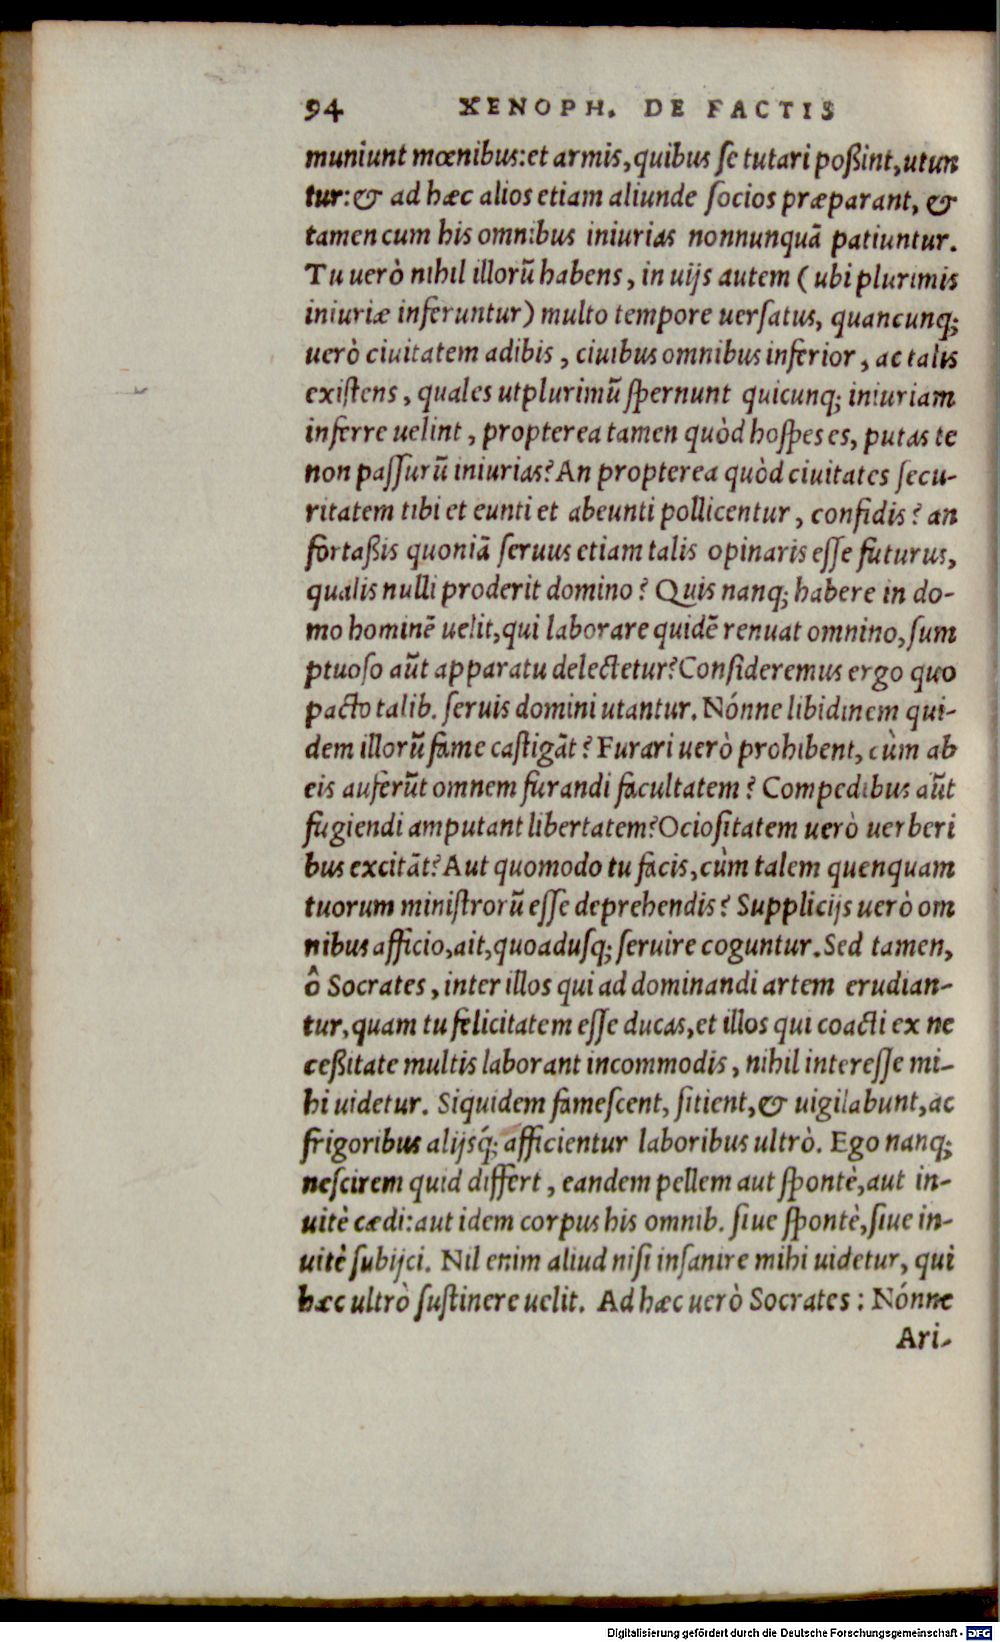 94 XENOPH. DE FACTIS
muniunt mœnibus: et armis, quibus ſe tutari poßint, utun
tur: & ad hæc alios etiam aliunde ſocios præparant, &
tamen cum his omnibus iniurias nonnunquã patiuntur.
Tu uerò nihil illorũ habens, in uijs autem (ubi plurimis
iniuriæ inferuntur) multo tempore uerſatus, quancunq;
uerò ciuitatem adibis, ciuibus omnibus inferior, ac talis
exiſtens, quales utplurimũ ſpernunt quicunq; iniuriam
inferre uelint, propterea tamen quòd hoſpes es, putas te
non paſſurũ iniurias? An propterea quòd ciuitates ſecu-
ritatem tibi et eunti et abeunti pollicentur, confidis? an
fortaßis quoniã ſeruus etiam talis opinaris eſſe futurus,
qualis nulli proderit domino? Quis nanq; habere in do-
mo hominẽ uelit, qui laborare quidẽ renuat omnino, ſum
ptuoſo aũt apparatu delectetur? Conſideremus ergo quo
pacto talib. ſeruis domini utantur. Nónne libidinem qui-
dem illorũ fame caſtigãt? Furari uerò prohibent, cùm ab
eis auferũt omnem furandi facultatem? Compedibus aũt
fugiendi amputant libertatem? Ocioſitatem uerò uerberi
bus excitãt? Aut quomodo tu facis, cùm talem quenquam
tuorum miniſtrorũ eſſe deprehendis? Supplicijs uerò om
nibus afficio, ait, quoaduſq; ſeruire coguntur. Sed tamen,
ô Socrates, inter illos qui ad dominandi artem erudian-
tur, quam tu felicitatem eſſe ducas, et illos qui coacti ex ne
ceßitate multis laborant incommodis, nihil intereſſe mi-
hi uidetur. Siquidem fameſcent, ſitient, & uigilabunt, ac
frigoribus alijsq́; afficientur laboribus ultrò. Ego nanq;
neſcirem quid differt, eandem pellem aut ſpontè, aut in-
uitè cædi: aut idem corpus his omnib. ſiue ſpontè, ſiue in-
uitè ſubijci. Nil enim aliud niſi inſanire mihi uidetur, qui
hæc ultrò ſuſtinere uelit. Ad hæc uerò Socrates: Nónne
Ari-
Digitalisierung gefördert durch die Deutsche Forschungsgemeinschaft - DFG